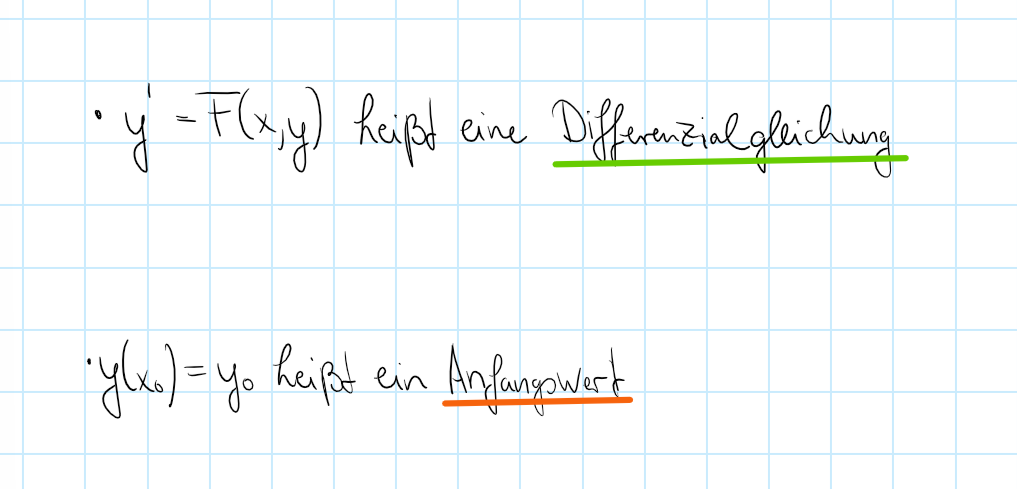 • y' = F(x,y) heißt eine Differenzialgleichung
• y(x₀) = y₀ heißt ein Anfangswert